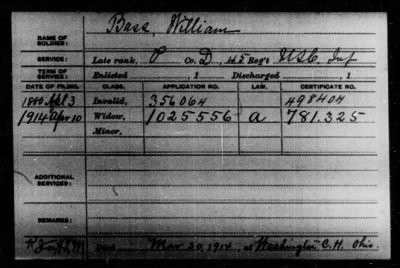 NAME OF SOLDIER: Bass, William
SERVICE: Late rank, P Co. D, 45 Reg't U.S.C. Inf
TERM OF SERVICE: Enlisted , 1 Discharged , 1
DATE OF FILING. CLASS. APPLICATION NO. LAW. CERTIFICATE NO.
1880 Apl 3 Invalid, 356064 498404
1914 Apr 10 Widow, 1025556 a 781.325
Minor,
ADDITIONAL SERVICES:
REMARKS:
Died Mar 30, 1914, at Washington C.H. Ohio.